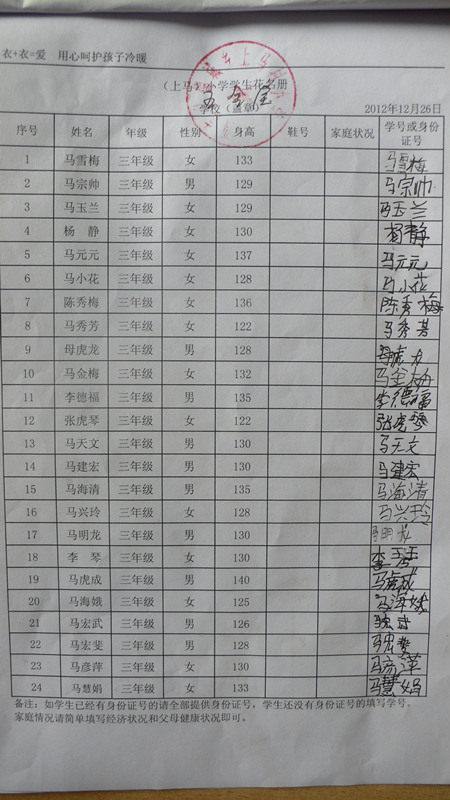 衣+衣=爱 用心呵护孩子冷暖
（上马 小学学生花名册
学校（盖章）
2012年12月26日
序号 姓名 年级 性别 身高 鞋号 家庭状况 学号或身份证号
1 马雪梅 三年级 女 133 马雪梅
2 马宗帅 三年级 男 129 马宗帅
3 马玉兰 三年级 女 129 马玉兰
4 杨 静 三年级 女 130 杨静
5 马元元 三年级 女 137 马元元
6 马小花 三年级 女 128 马小花
7 陈秀梅 三年级 女 136 陈秀梅
8 马秀芳 三年级 女 122 马秀芳
9 母虎龙 三年级 男 128
10 马金梅 三年级 女 132 马金梅
11 李德福 三年级 男 135 李德福
12 张虎琴 三年级 女 122 张虎琴
13 马天文 三年级 男 130 马天文
14 马建宏 三年级 男 130 马建宏
15 马海清 三年级 男 135 马海清
16 马兴玲 三年级 女 128 马兴玲
17 马明龙 三年级 男 130 马明龙
18 李 琴 三年级 女 130 李
19 马虎成 三年级 男 140 马虎成
20 马海娥 三年级 女 125 马海娥
21 马宏武 三年级 男 126 马宏武
22 马宏斐 三年级 男 128 马宏
23 马彦萍 三年级 女 130 马彦萍
24 马慧娟 三年级 女 133 马慧娟
备注：如学生已经有身份证号的请全部提供身份证号，学生还没有身份证号的填写学号。
家庭情况请简单填写经济状况和父母健康状况即可。